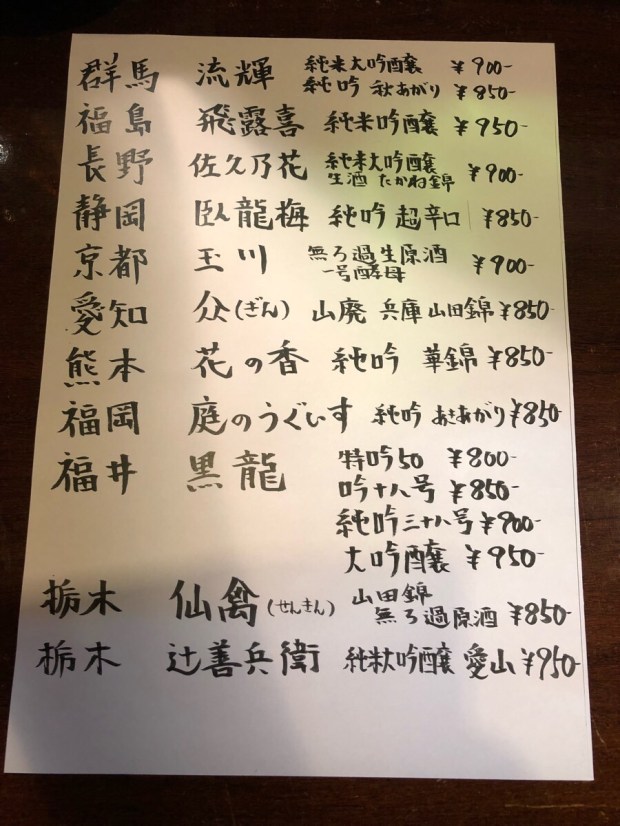 群馬 流輝 純米大吟醸 ¥900-
純吟 秋あがり ¥850-
福島 飛露喜 純米吟醸 ¥950-
長野 佐久乃花 純米大吟醸
生酒 たかね錦 ¥900-
静岡 臥龍梅 純吟 超辛口 ¥850-
京都 玉川 無ろ過生原酒
一号酵母 ¥900-
愛知 㐂(ぎん) 山廃 兵庫山田錦 ¥850-
熊本 花の香 純吟 華錦 ¥850-
福岡 庭のうぐいす 純吟 あきあがり ¥850-
福井 黒龍 特吟50 ¥800-
吟十八号 ¥850-
純吟三十八号 ¥900-
大吟醸 ¥950-
栃木 仙禽(せんきん) 山田錦
無ろ過原酒 ¥850-
栃木 辻善兵衛 純米大吟醸 愛山 ¥950-